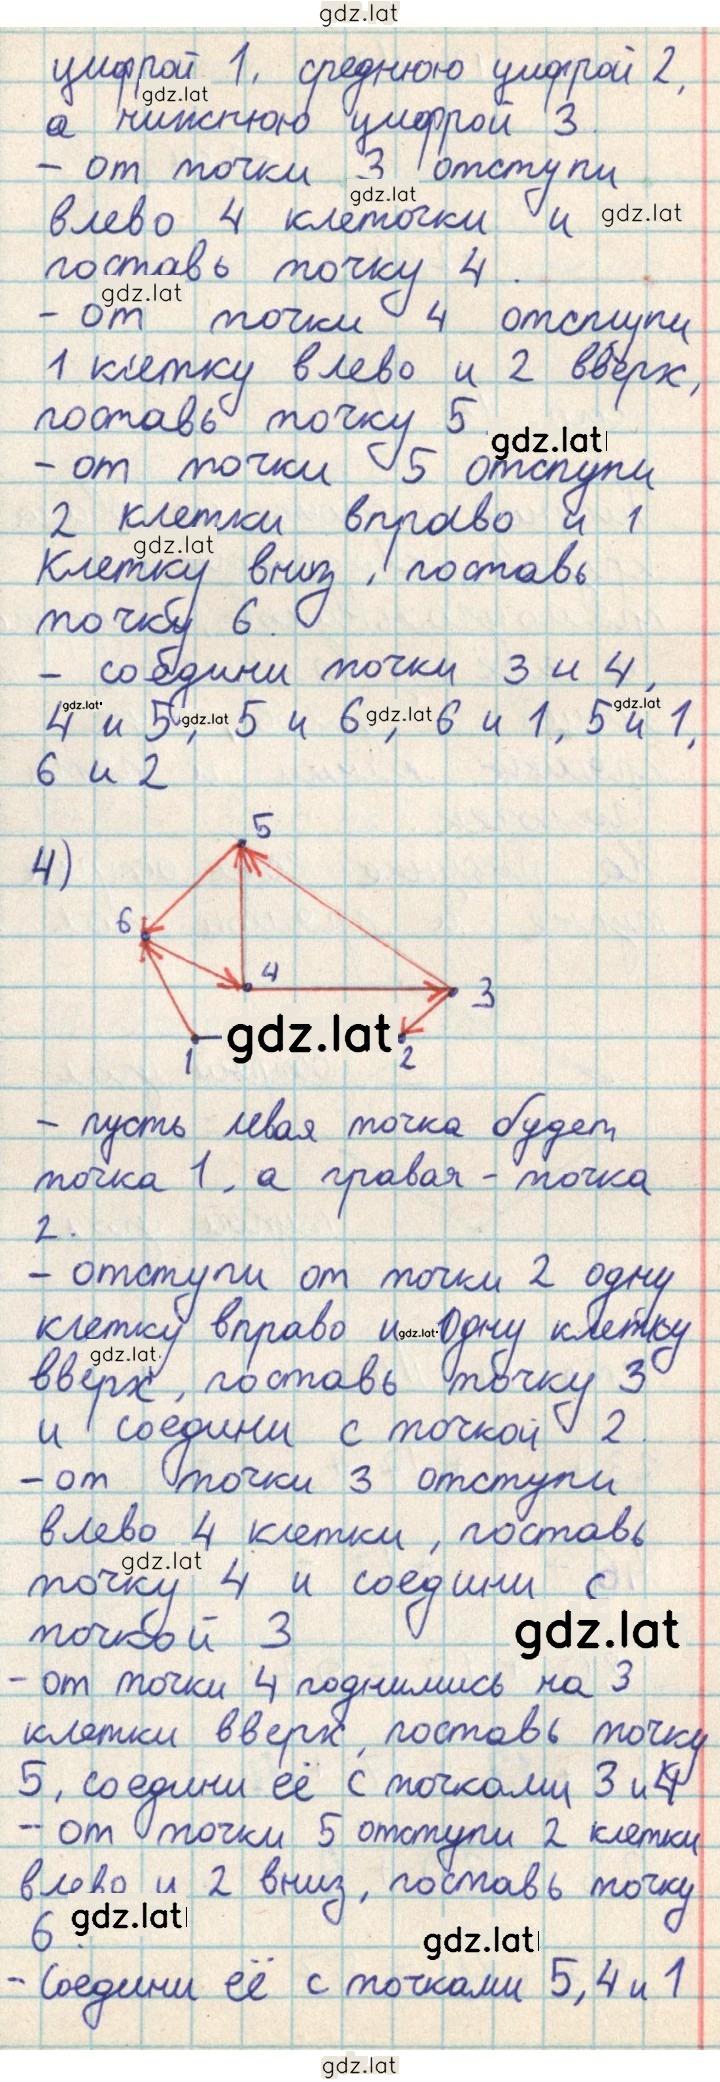 gdz.lat
цифрой 1, среднюю цифрой 2,
gdz.lat
а нижнюю цифрой 3.
- от точки 3 отступи
gdz.lat
влево 4 клеточки и gdz.lat
поставь точку 4.
gdz.lat
- от точки 4 отступи
1 клетку влево и 2 вверх,
поставь точку 5
gdz.lat
- от точки 5 отступи
2 клетки вправо и 1
gdz.lat
клетку вниз, поставь
точку 6.
- соедини точки 3 и 4,
gdz.lat gdz.lat gdz.lat gdz.lat
4 и 5, 5 и 6, 6 и 1, 5 и 1,
6 и 2
4)
5
6
4
3
gdz.lat
1
2
- пусть левая точка будет
точка 1, а правая - точка
2.
- отступи от точки 2 одну
клетку вправо и gdz.lat одну клетку
gdz.lat
вверх, поставь точку 3
и соедини с точкой 2.
- от точки 3 отступи
влево 4 клетки, поставь
gdz.lat
точку 4 и соедини с
точкой 3
gdz.lat
- от точки 4 поднимись на 3
клетки вверх, поставь точку
5, соедини её с точками 3 и 4
- от точки 5 отступи 2 клетки
влево и 2 вниз, поставь точку
6. gdz.lat
gdz.lat
- Соедини её с точками 5, 4 и 1
gdz.lat